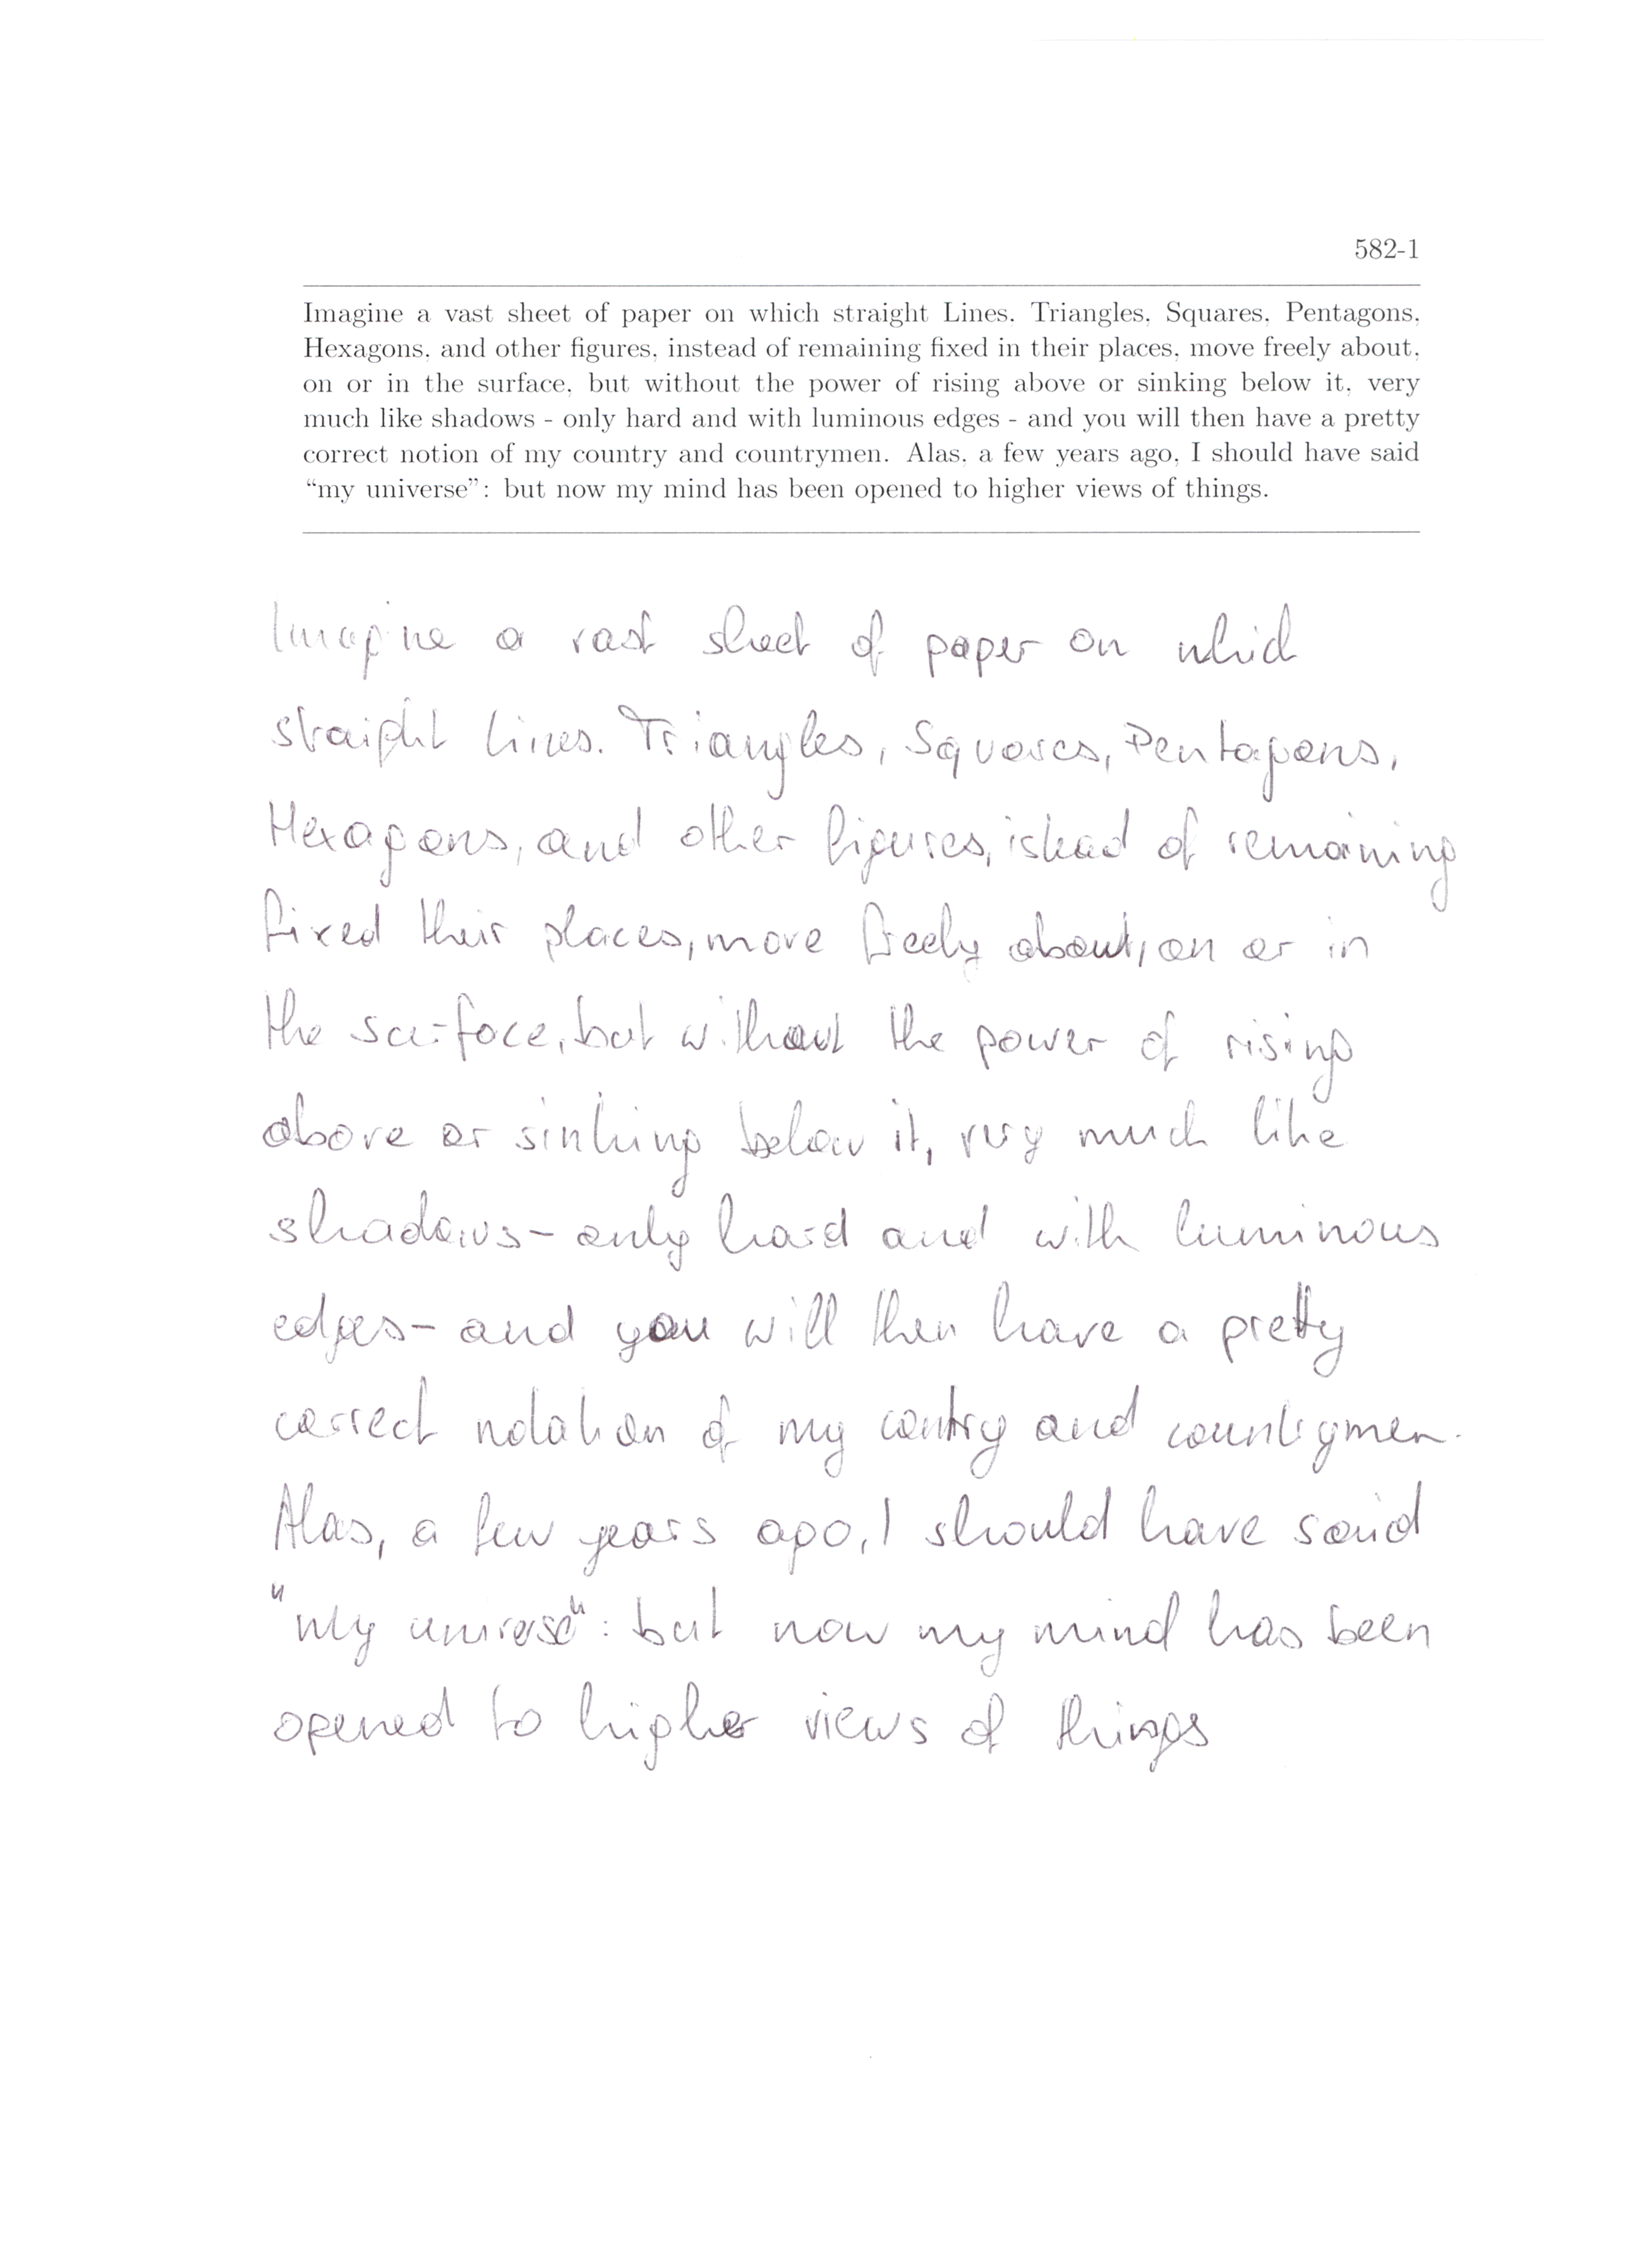 582-1
Imagine a vast sheet of paper on which straight Lines. Triangles, Squares, Pentagons,
Hexagons, and other figures, instead of remaining fixed in their places, move freely about,
on or in the surface, but without the power of rising above or sinking below it, very
much like shadows - only hard and with luminous edges - and you will then have a pretty
correct notion of my country and countrymen. Alas, a few years ago, I should have said
“my universe”: but now my mind has been opened to higher views of things.
Imagine a vast sheet of paper on which
straight lines. Triangles, Squares, Pentagons,
Hexagons, and other figures, istead of remaining
fixed their places, move freely about, on or in
the surface, but without the power of rising
above or sinking below it, very much like
shadows - only hard and with luminous
edges - and you will then have a pretty
correct notation of my contry and countrymen.
Alas, a few years ago, I should have said
"my universe": but now my mind has been
opened to higher views of things